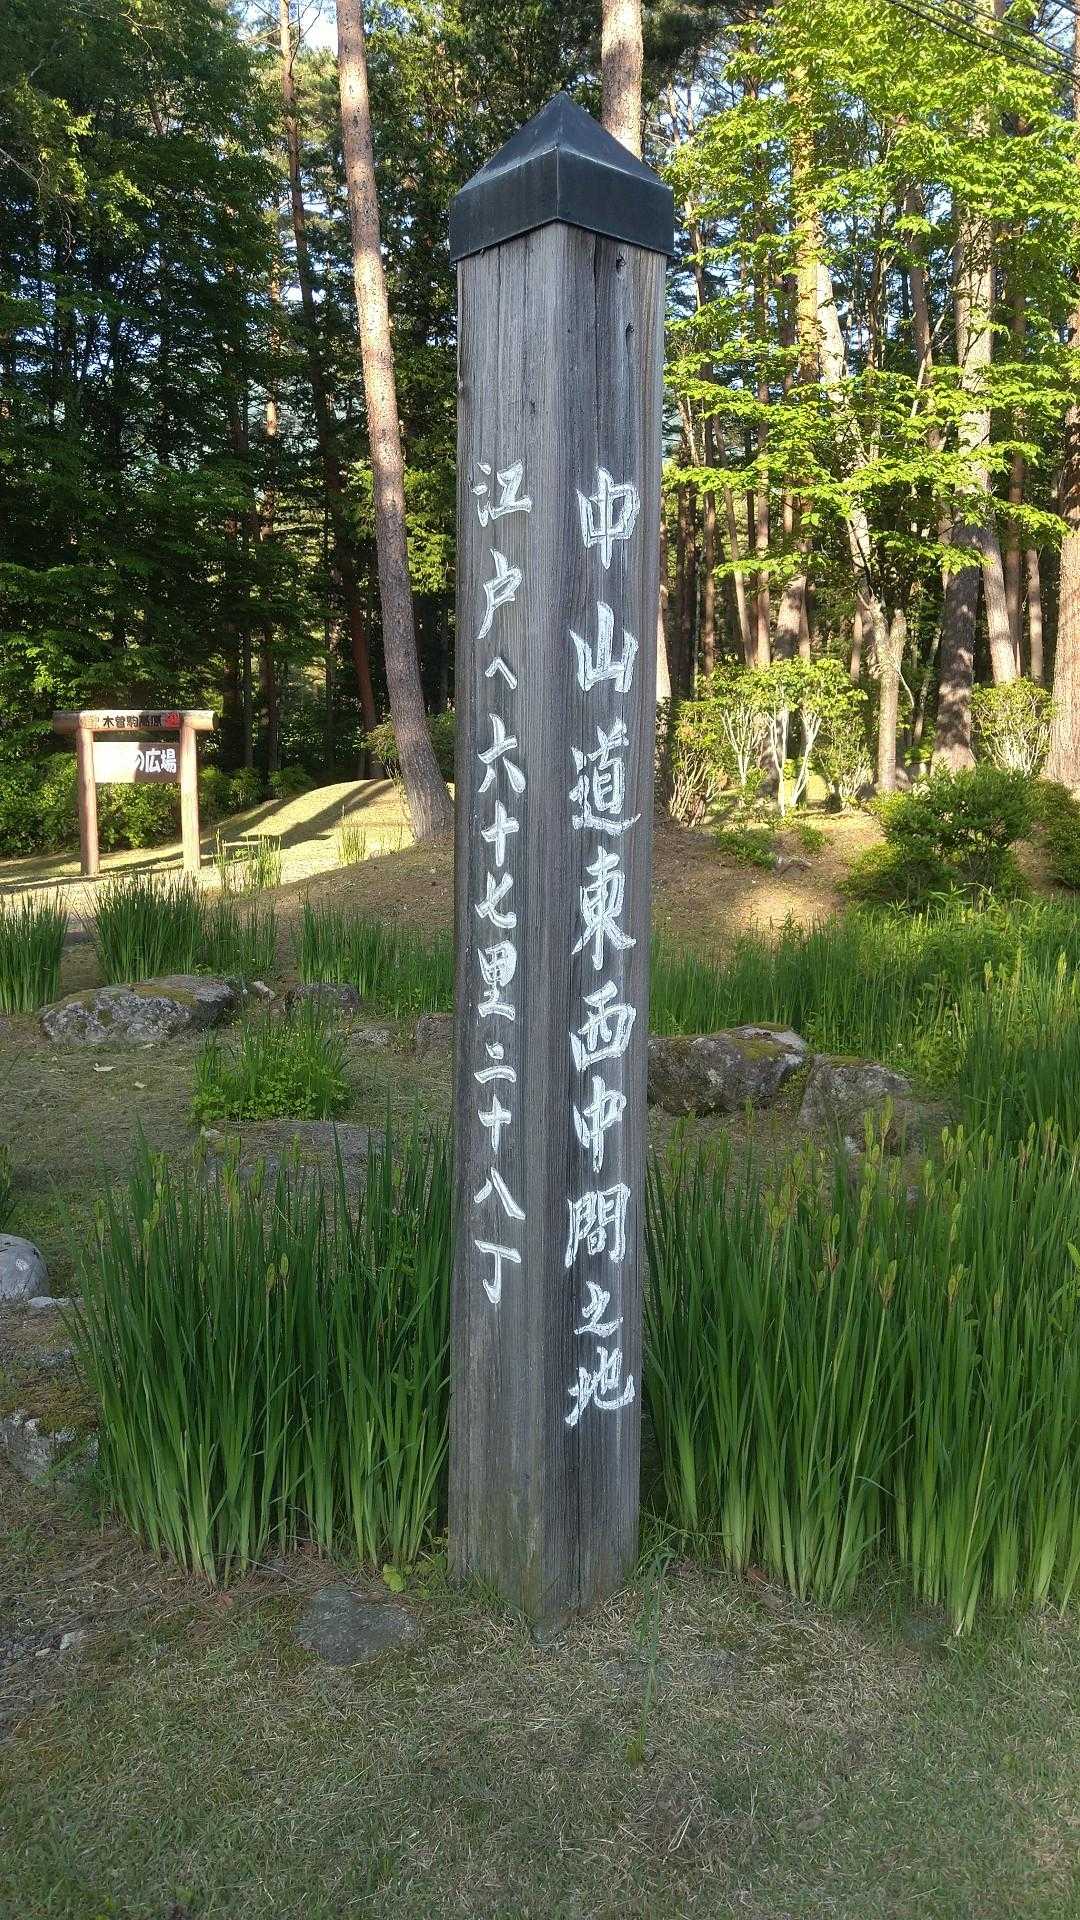 中山道東西中間之地
江戸へ六十七里二十八丁
木曽駒高原
の広場